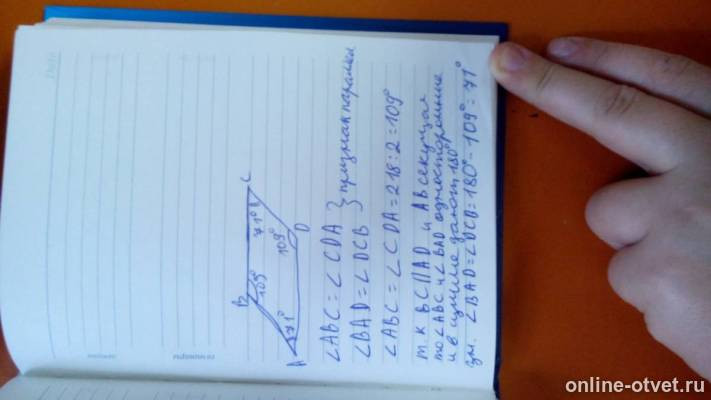 B
C
109°
71°
71°
109°
A
D
∠ABC = ∠CDA } признак
∠BAD = ∠DCB
∠ABC = ∠CDA = 218:2 = 109°
т.к BC||AD и AB секущая
то ∠ABC и ∠BAD односторонние
и в сумме дают 180°
∠BAD = ∠DCB = 180° - 109° = 71°
online-otvet.ru